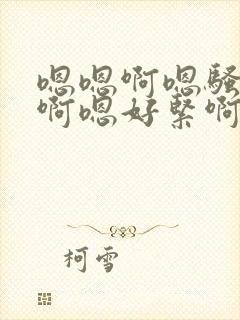 嗯嗯啊嗯骚
啊嗯好紧啊
柯雪